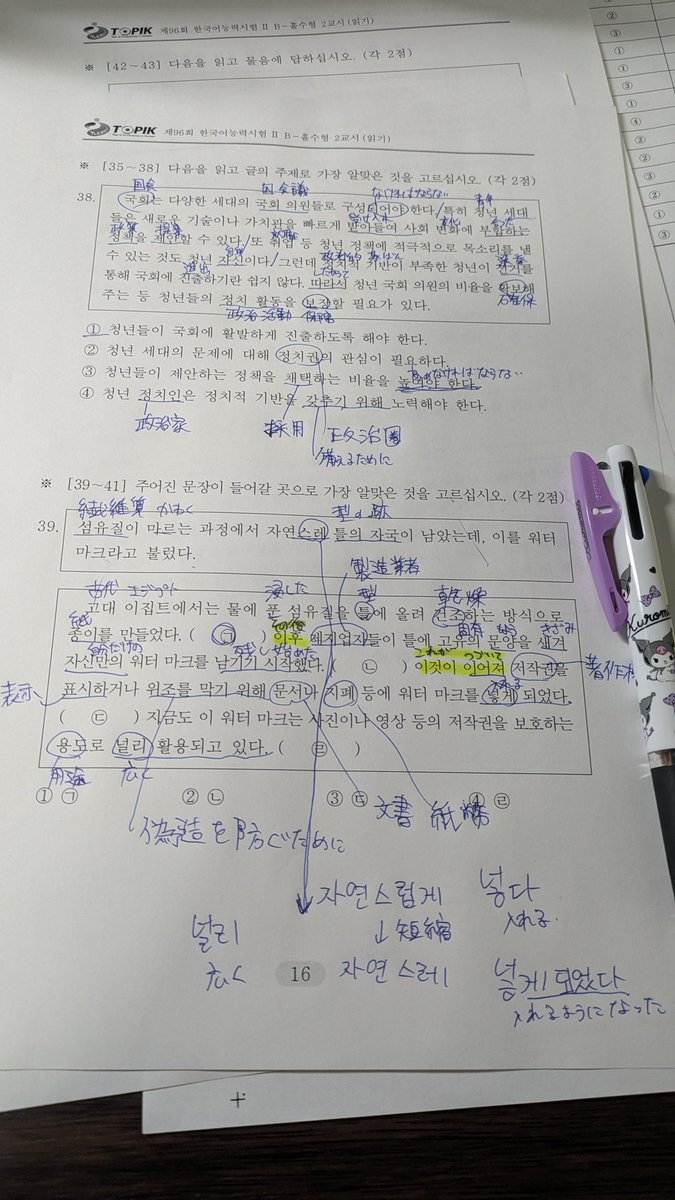 TOPIK 제96회 한국어능력시험 II B-홀수형 2교시(읽기)
※ [42~43] 다음을 읽고 물음에 답하십시오. (각 2점)
TOPIK 제96회 한국어능력시험 II B-홀수형 2교시(읽기)
※ [35~38] 다음을 읽고 글의 주제로 가장 알맞은 것을 고르십시오. (각 2점)
国会 国会議 なければならない 青年
38. 국회는 다양한 세대의 국회 의원들로 구성되어야 한다. 특히 청년 세대
受け入れ 変化
들은 새로운 기술이나 가치관을 빠르게 받아들여 사회 변화에 부합하는
政策 提案
정책을 제안할 수 있다. 또 취업 등 청년 정책에 적극적으로 목소리를 낼
自身 政治的
수 있는 것도 청년 자신이다. 그런데 정치적 기반이 부족한 청년이 선거를
進出 したがって
통해 국회에 진출하기란 쉽지 않다. 따라서 청년 국회 의원의 비율을 확보해
確保
주는 등 청년들의 정치 활동을 보장할 필요가 있다.
政治活動 保障
① 청년들이 국회에 활발하게 진출하도록 해야 한다.
② 청년 세대의 문제에 대해 정치권의 관심이 필요하다.
③ 청년들이 제안하는 정책을 채택하는 비율을 높여야 한다.
④ 청년 정치인은 정치적 기반을 갖추기 위해 노력해야 한다.
政治家 採用 政治圏
備えるために
※ [39~41] 주어진 문장이 들어갈 곳으로 가장 알맞은 것을 고르십시오. (각 2점)
繊維質 かわく 型の跡
39. 섬유질이 마르는 과정에서 자연스레 틀의 자국이 남았는데, 이를 워터
마크라고 불렀다.
製造業者
古代 エジプト 浸した 型 乾燥
고대 이집트에서는 물에 푼 섬유질을 틀에 올려 건조하는 방식으로
紙 固有 きざみ
종이를 만들었다. ( ㉠ ) 이후 제지업자들이 틀에 고유의 문양을 새겨
残し始めた これが つづいて
자신만의 워터 마크를 남기기 시작했다. ( ㉡ ) 이것이 이어져 저작권을
著作権
表示 入れる
표시하거나 위조를 막기 위해 문서나 지폐 등에 워터 마크를 넣게 되었다.
( ㉢ ) 지금도 이 워터 마크는 사진이나 영상 등의 저작권을 보호하는
용도로 널리 활용되고 있다. ( ㉣ )
用途 広く
① ㉠ ② ㉡ ③ ㉢ ④ ㉣
文書 紙幣
偽造を防ぐために
자연스럽게 넣다
널리 ↓短縮 入れる
広く 자연스레 넣게 되었다
入れるようになった
16
Kuromi